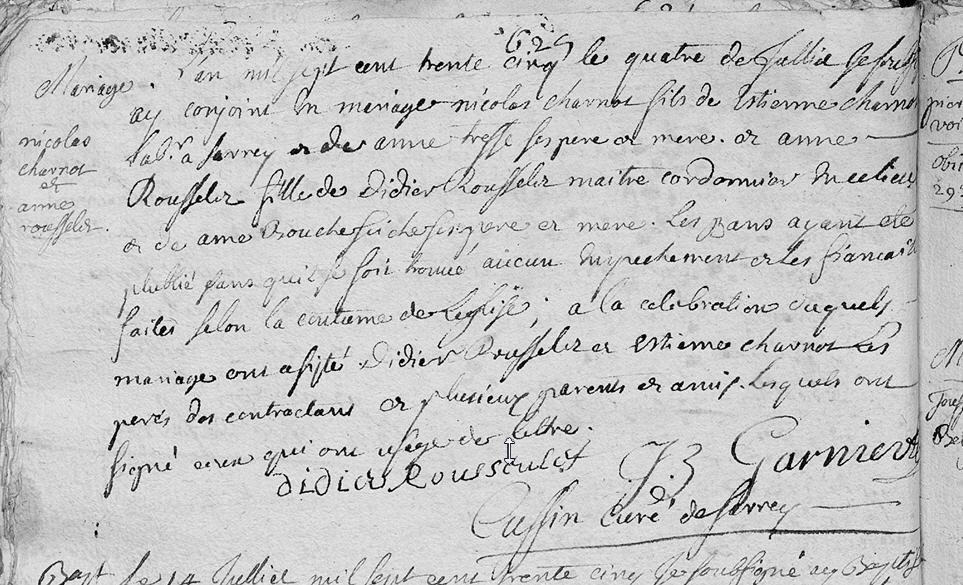 625
Mariage. L'an mil sept cent trente cinq le quatre de Jullie je
ay conjoint en mariage nicolas charnot fils de Estienne charnot
nicolas
charnot
et
anne
rousselez.
lab.r a Sarrey et de anne tresse ses pere et mere. et anne
Rousselez fille de Didier Rousselez maitre cordonnier en ce lieu
et de anne Bouchesseiche ses pere et mere. Les bans ayant eté
publié sans qu'il se soit trouué aucun empechement et les
faites selon la coutume de L'eglise; a la celebration duquels
mariage ont assisté Didier Rousselez et Estienne charnot Les
peres des contractans et plusieux parents et amis. Lesquels ont
signé ceux qui ont usage de lettre.
didier Rousselet J B Garnier
Cassin Curé de Sarrey
Bapt Le 14 Juillet mil sept cent trente cinq je soussigné ay Baptisé